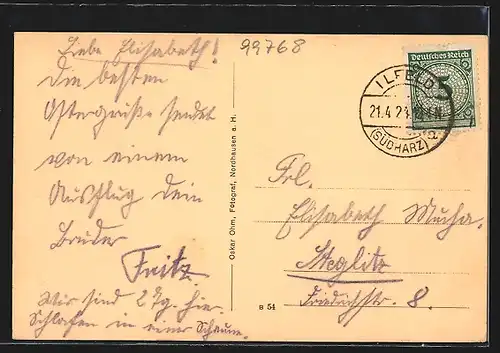 99768
Liebe Elisabeth!
Die besten
Ostergrüße sendet
von einem
Ausflug Dein
Bruder
Fritz
Wir sind 2 Tg. hier.
Schlafen in einer Scheune.
Oskar Ohm, Fotograf, Nordhausen a. H.
B 54
Deutsches Reich
5
ILFELD
21.4.24
(SÜDHARZ)
Frl.
Elisabeth Mucha.
Steglitz
Friedrichstr. 8.